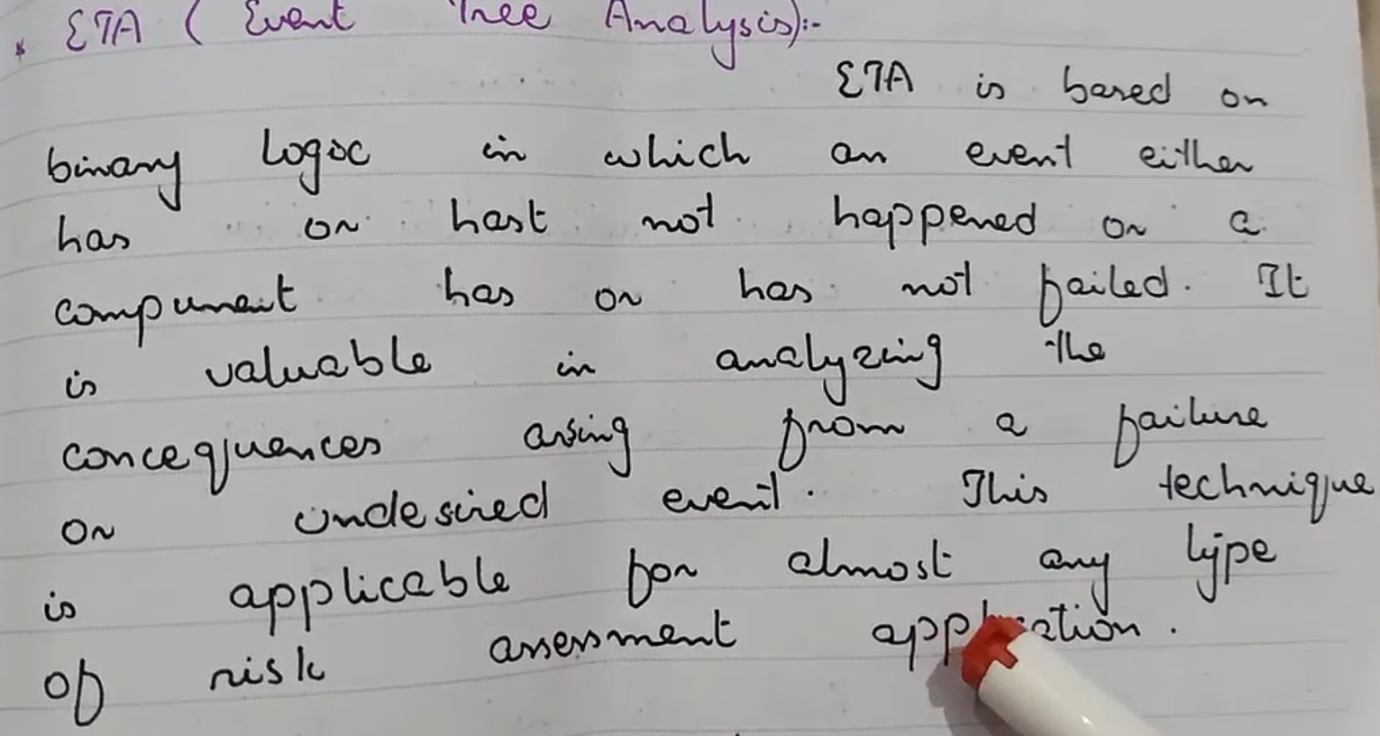 * ETA ( Event Tree Analysis):-
ETA is based on
binary logic in which an event either
has or hast not happened or a
compunent has or has not failed. It
is valuable in analyzing the
concequences arising from a failure
or undesired event. This technique
is applicable for almost any type
of risk assesment application.